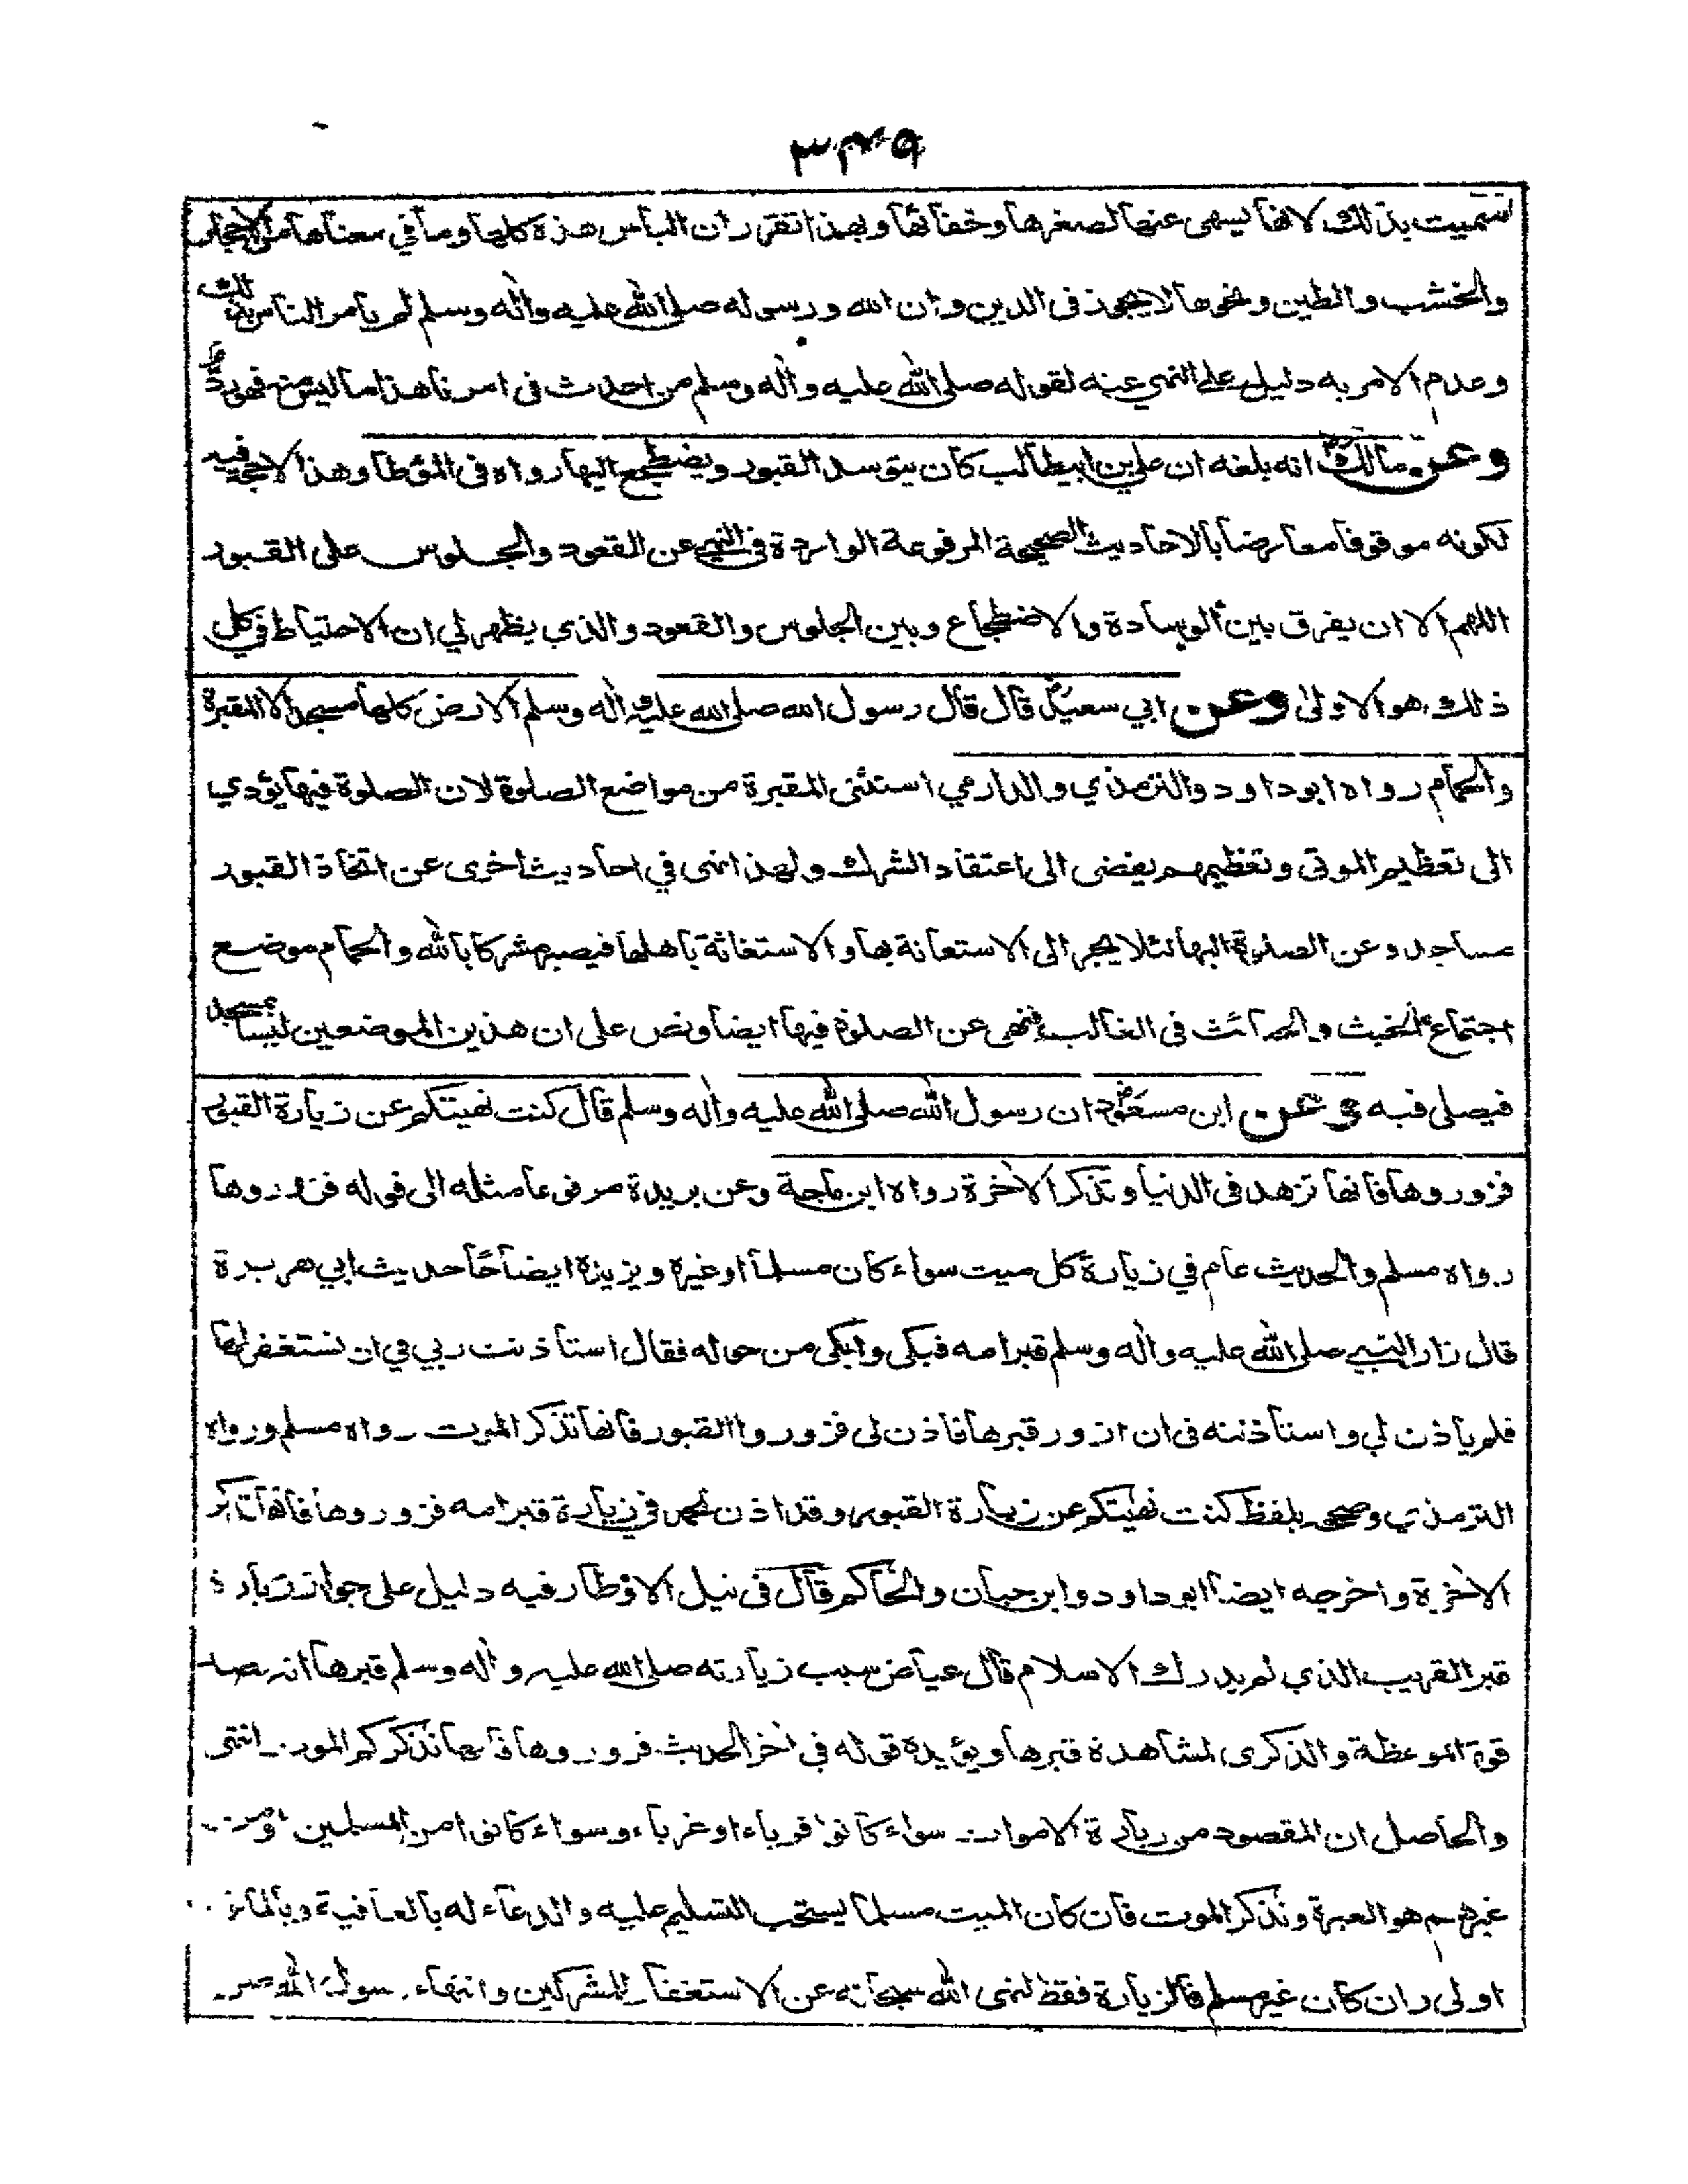 ٣٤٩
تسميت بذلك لانها يسهى عنها لصغرها وخفائها وبهذا تقرر ان الباس هذه كلها وما في معناها من الاحجار
والخشب والطين ونحوها لا يجوز فى الدين وان الله ورسوله صلى الله عليه واٰله وسلم لم يأمر الناس بذلك
وعدم الامر به دليل على النهي عنه لقوله صلى الله عليه واٰله وسلم من احدث فى امرنا هذا ما ليس منه فهو ردٌّ
وعن مالك انه بلغه ان علي بن ابيطالب كان يتوسد القبور ويضطجع اليها رواه فى المؤطا وهذا لا حجة فيه
لكونه موقوفا معارضا بالاحاديث الصحيحة المرفوعة الواردة فى النهي عن القعود والجلوس على القبور
اللهم الا ان يفرق بين الوسادة والاضطجاع وبين الجلوس والقعود والذي يظهر لي ان الاحتياط في كل
ذلك هو الاولىٰ وعن ابي سعيد قال قال رسول الله صلى الله عليه واٰله وسلم الارض كلها مسجد الا المقبرة
والحمام رواه ابوداود والترمذي والدارمي استثنى المقبرة من مواضع الصلوة لان الصلوة فيها يؤدي
الى تعظيم الموتى وتعظيمهم يفضى الى اعتقاد الشرك ولهذا نهى في احاديث اخرى عن اتخاذ القبور
مساجد وعن الصلوة اليها لئلا يجر الى الاستعانة بها والاستغاثة باهلها فيصير مشركا بالله والحمام موضع
اجتماع الخبث والحدائث فى الغالب فنهى عن الصلوة فيها ايضا ونص على ان هذين الموضعين ليسا بمسجد
فيصلى فيه وعن ابن مسعود ان رسول الله صلى الله عليه واٰله وسلم قال كنت نهيتكم عن زيارة القبور
فزوروها فانها تزهد فى الدنيا وتذكر الاٰخرة رواه ابن ماجة وعن بريدة مرفوعا مثله الى قوله فزوروها
رواه مسلم والحديث عام في زيارة كل ميت سواء كان مسلما او غيره ويزيده ايضاحًا حديث ابي هريرة
قال زار النبي صلى الله عليه واٰله وسلم قبر امه فبكى وابكى من حوله فقال استأذنت ربي في ان نستغفر لها
فلم يأذن لي واستأذنته فى ان ازور قبرها فاذن لى فزوروا القبور فانها تذكر الموت رواه مسلم ورواه
الترمذي وصححه بلفظ كنت نهيتكم عن زيارة القبور وقد اذن لمحمد في زيارة قبر امه فزوروها فانها تذكر
الاٰخرة واخرجه ايضا ابوداود وابن حبان والحاكم قال فى نيل الاوطار فيه دليل على جواز زيارة
قبر القريب الذي لم يدرك الاسلام قال عياض سبب زيارته صلى الله عليه واٰله وسلم قبرها انه قصد
قوة الموعظة والذكرى لمشاهدة قبرها ويؤيده قوله في اٰخر الحديث فزوروها فانها تذكركم الموت انتهى
والحاصل ان المقصود من زيارة الاموات سواء كانوا قرباء او غرباء وسواء كانوا من المسلمين او من
غيرهم هو العبرة وتذكر الموت فان كان الميت مسلما يستحب التسليم عليه والدعاء له بالعافية وبالمأثور
اولى وان كان غير مسلم فالزيارة فقط لنهى الله سبحانه عن الاستغفار للمشركين وانتهاء رسول الله